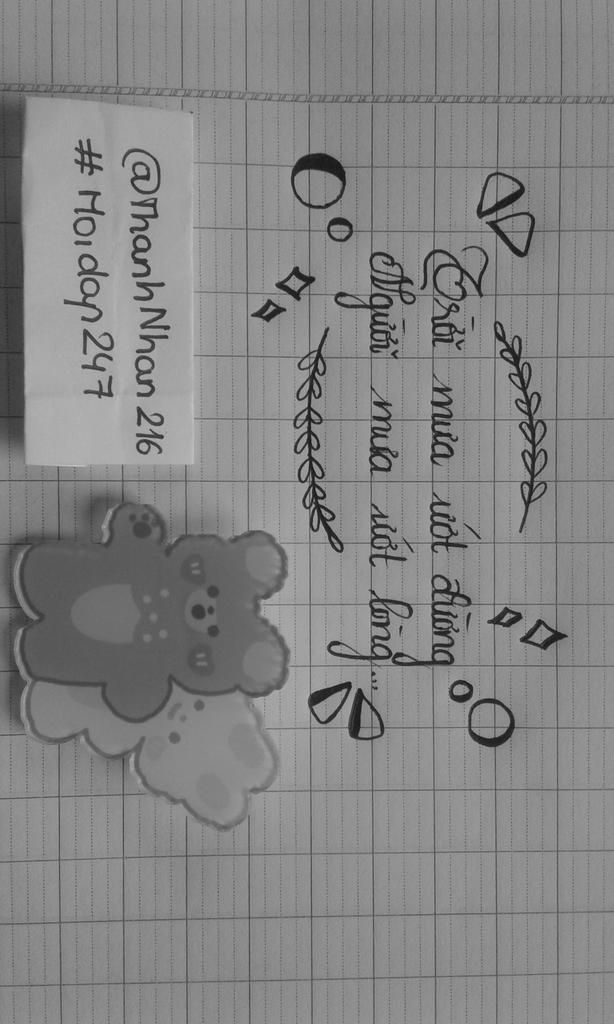 Trời mưa ướt đường
Người mưa ướt lòng...
@ThanhNhan216
#Hoidap247